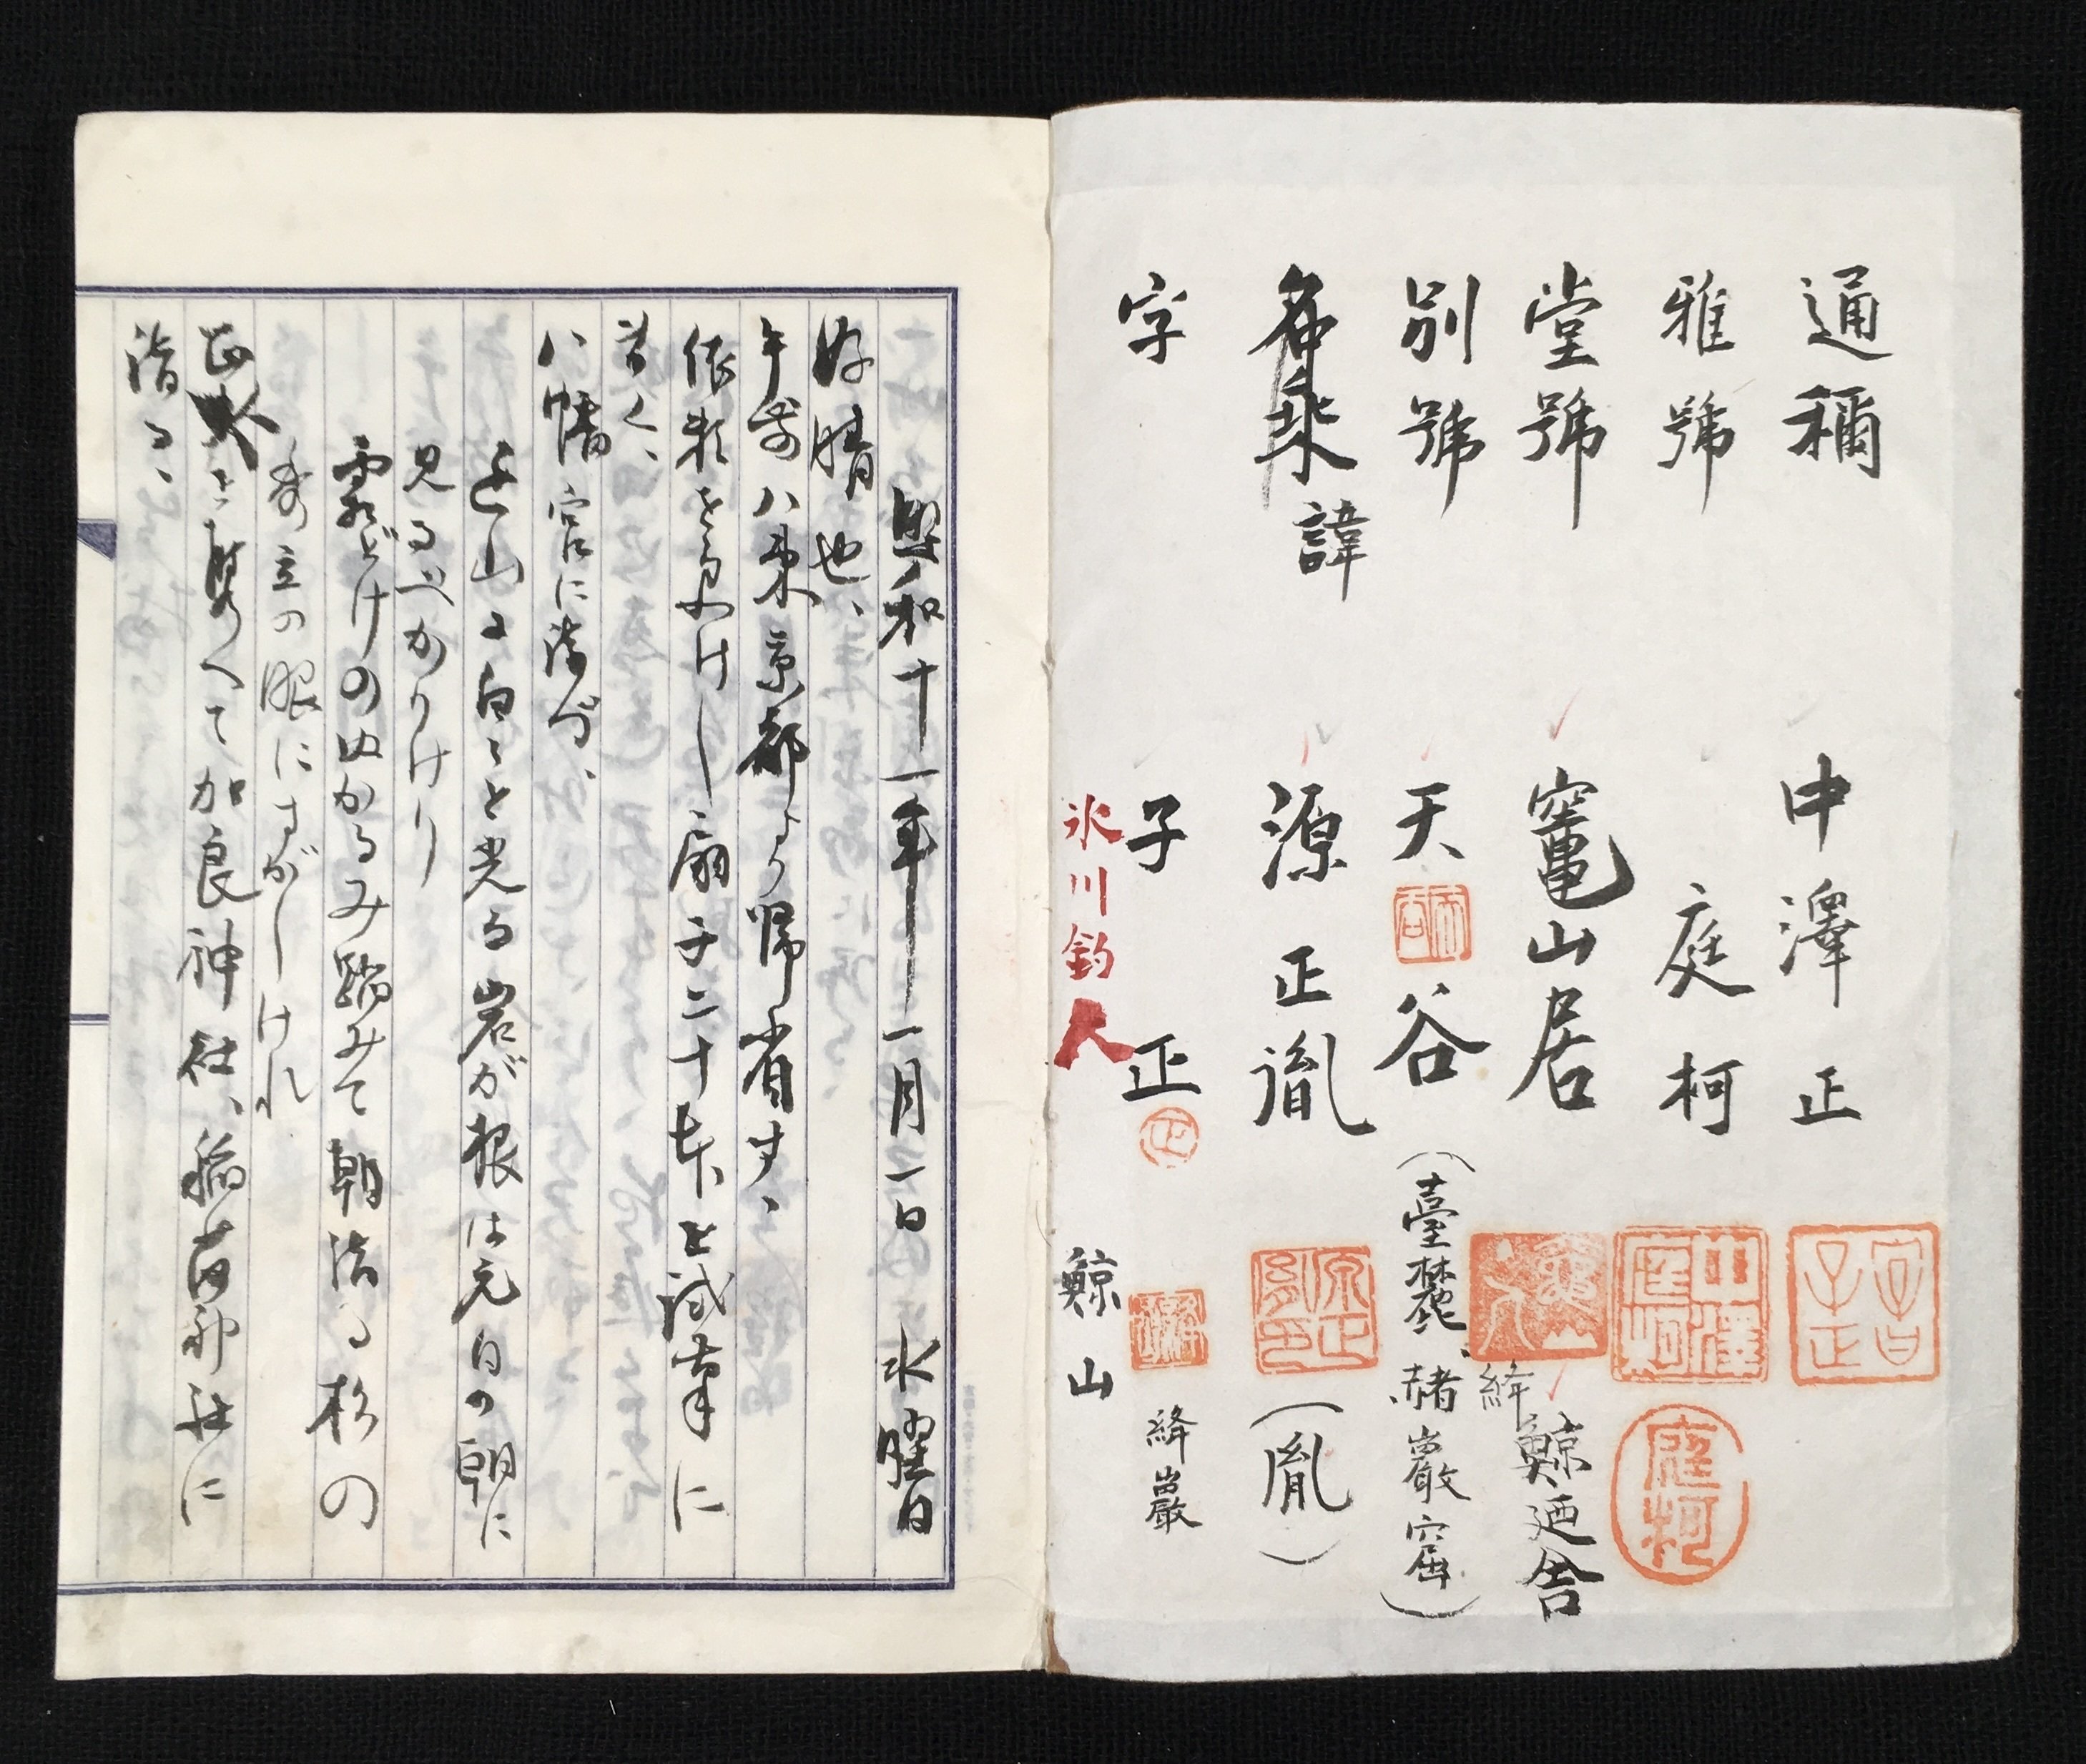 通稱 中澤正
雅號 庭柯
堂號 竈山居
別號 天谷
諱 源正胤
字 子正
字曰子正
中澤庭柯
庭柯
絳
鯨廼舍
(臺麓、赭巖窟)
天谷
源正胤印
(胤)
正
絳巖
氷川釣人
鯨山
昭和十一年一月一日 水曜日
好晴也、
午前八東京都より歸省す、
依頼をうけし扇子二十本を試筆に
書く、
八幡宮に詣づ、
辺山に白々と光る岩が根は元日の朝に
見るべかりけり
霜どけのぬかるみ踏みて朝詣る杉の
秀立の眼にすがしけれ
加良神社、稲荷神社に
詣る、